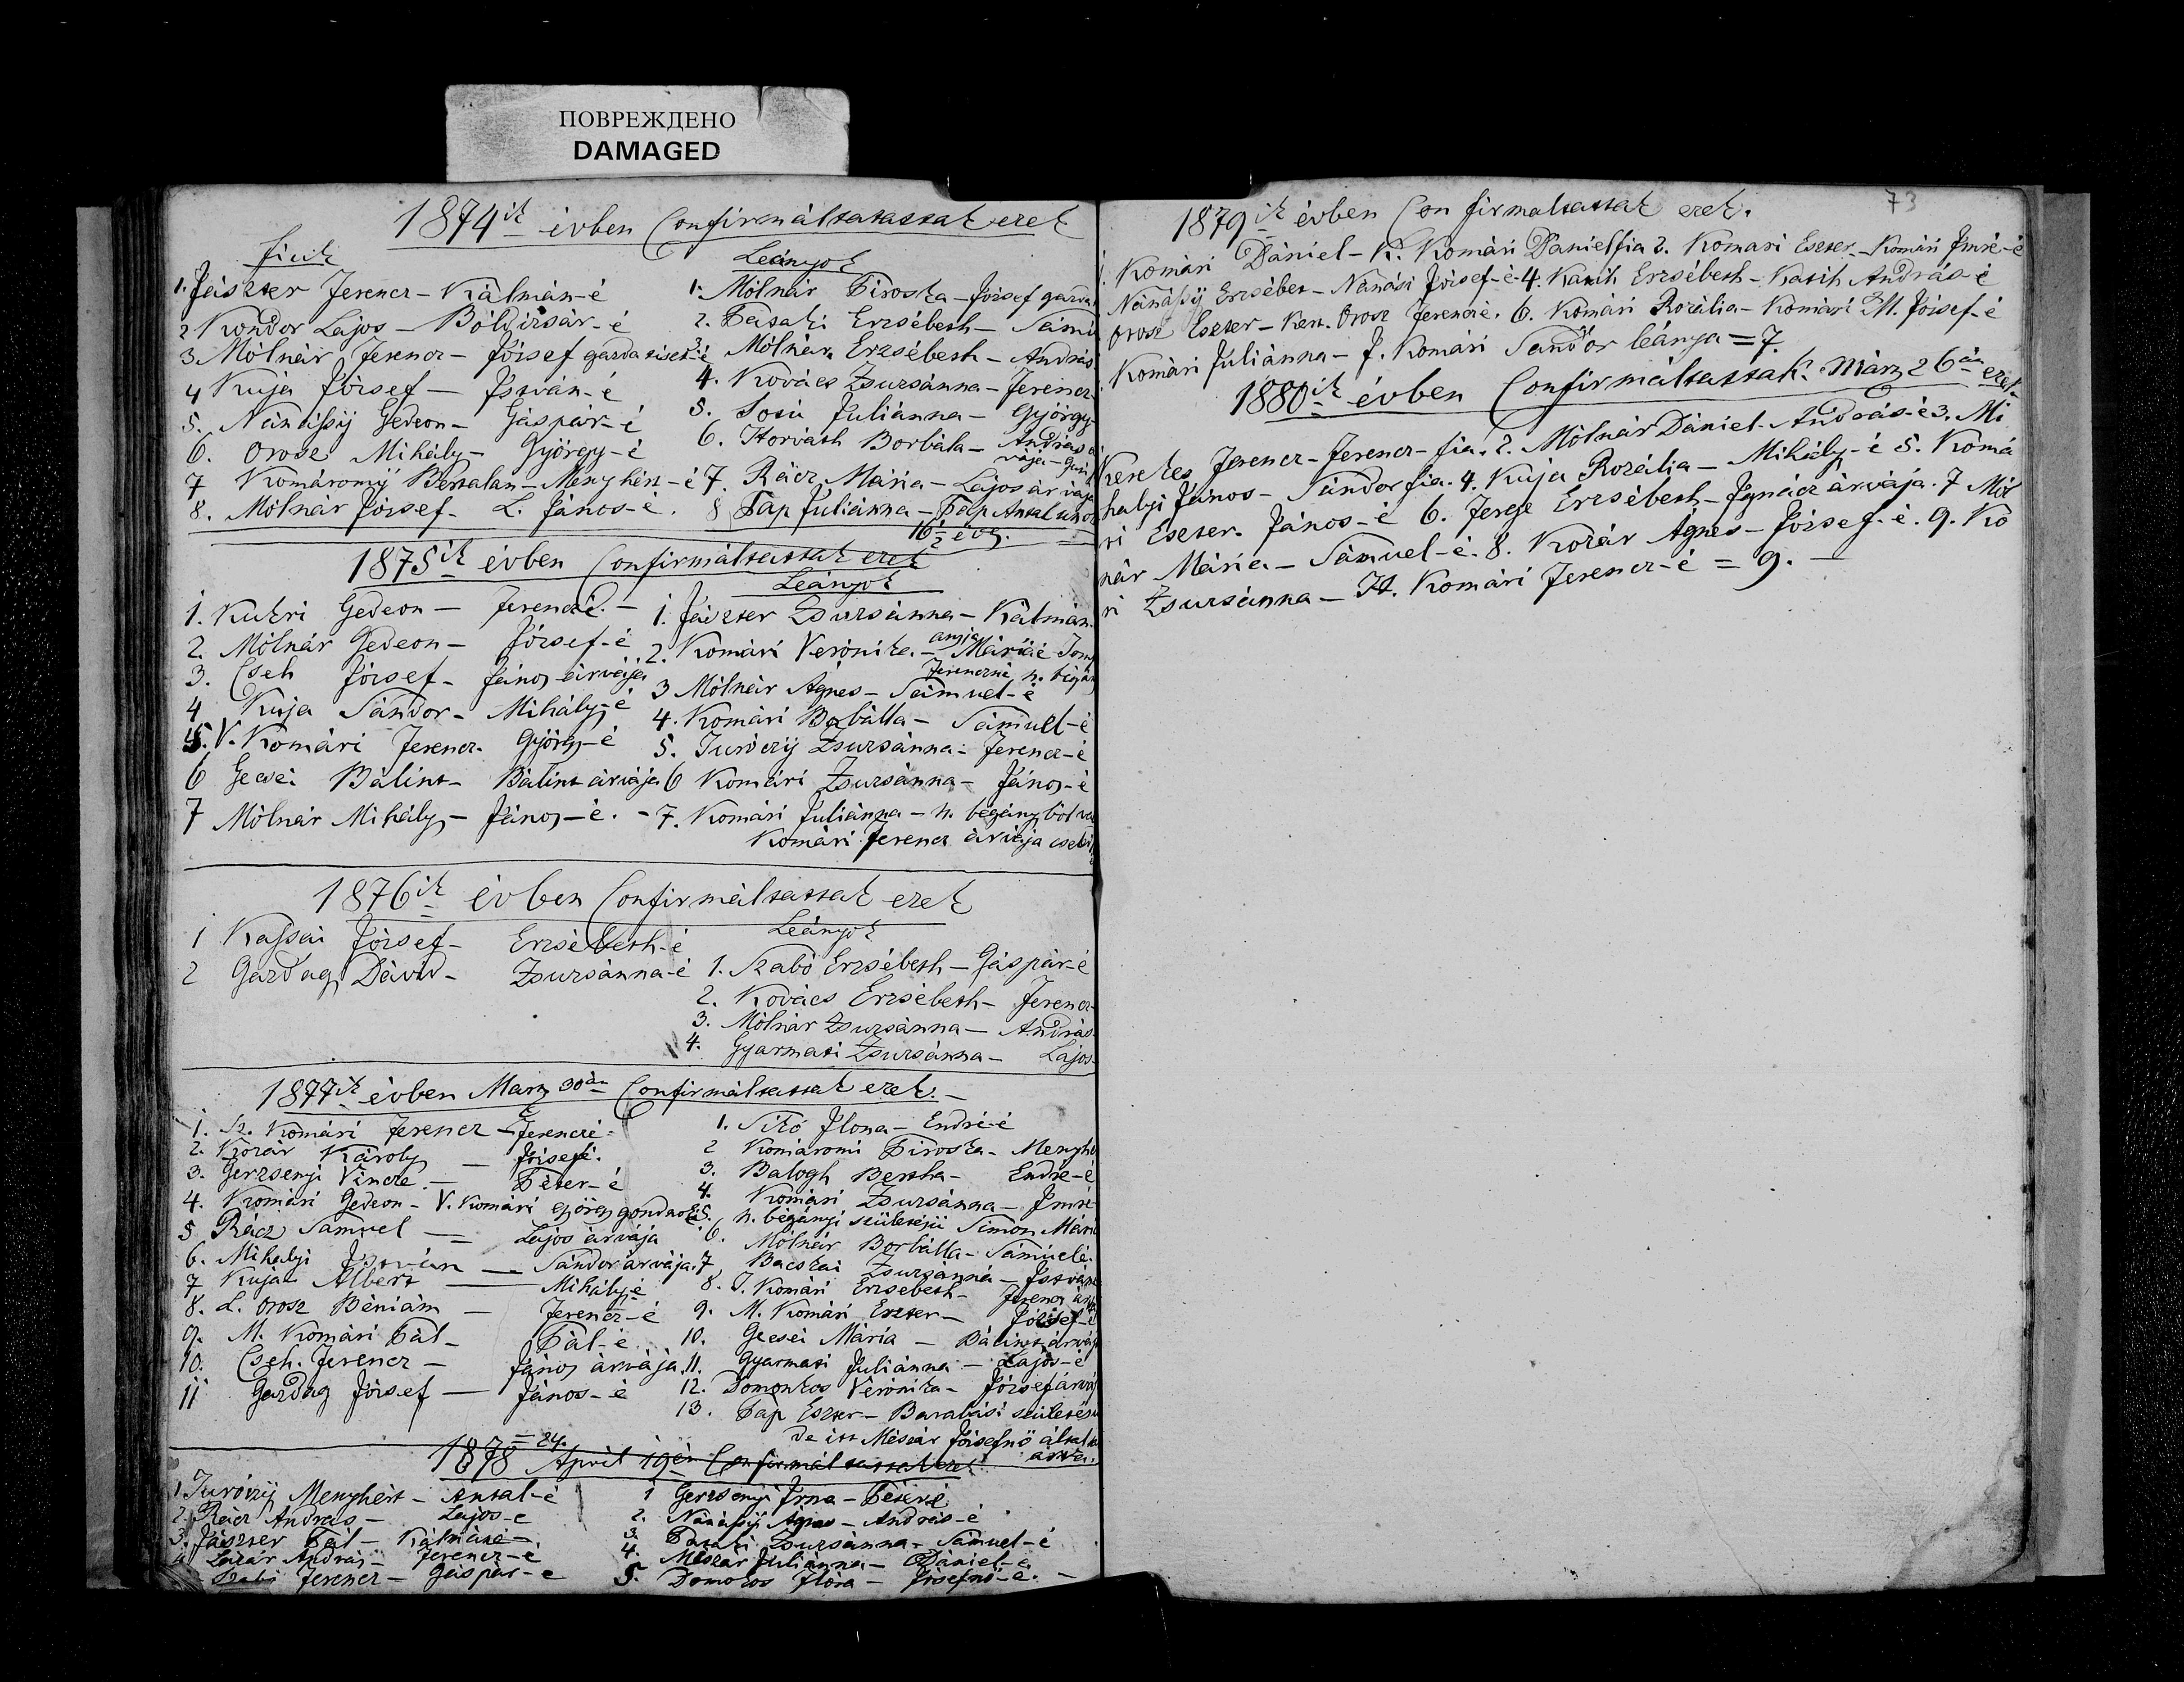 ПОВРЕЖДЕНО
DAMAGED
1874ik évben Confirmáltattattak ezek
fiuk
1. Jászter Ferencz - Kálmán-é
2 Kondor Lajos - Boldizsár-é
3 Mólnár Ferencz - József gazda tiszt-é
4 Kuja József - István-é
5. Nánássÿ Gedeon - Gáspár-é
6. Orosz Mihály - György-é
7 Komáromÿ Bertalan - Menyhért-é
8. Mólnár József - L. János-é.
Leányok
1. Mólnár Piroska - József gazda
2. Pataki Erzsébeth - Sámu
3 Mólnár Erzsébeth - András
4. Kovács Zsuzsánna - Ferencz-
5. Soói Juliánna - György-
6. Horváth Borbála - András á
7. Rácz Mária - Lajos árvája
8 Pap Juliánna - Pap Antal unok
16½ éves.
1875ik évben Confirmáltattak ezek
1. Kukri Gedeon - Ferenczé. -
2. Mólnár Gedeon - József-é
3. Cseh József - János árvája
4 Kuja Sándor - Mihály-é
5. V. Komári Ferencz - György-é
6 Gecsei Bálint - Bálint árvája
7 Mólnár Mihály - János-é. -
Leányok
1. Jászter Zsuzsánna - Kálmán
2. Komári Verónika - anyja Máriáé
Ferenczné n. bégány
3 Mólnár Ágnes - Sámuel-é
4. Komári Bobálla - Sámuel-é
5. Turóczÿ Zsuzsánna - Ferencz-é
6 Komári Zsuzsánna - János-é
7. Komári Juliánna - n. bégányból
Komári Ferencz árvája
1876ik évben Confirmáltattak ezek
1 Kassai József - Erzsébeth-é
2 Gazdag Dávid - Zsuzsánna-é
Leányok
1. Szabó Erzsébeth - Gáspár-é
2. Kovács Erzsébeth - Ferencz-
3. Mólnár Zsuzsánna - András-
4. Gyarmati Zsuzsánna - Lajos-
1877ik évben Marz 30án Confirmáltattak ezek. -
1. Sz. Komári Ferencz - Ferenczé -
2. Kozár Károly - Józsefé.
3. Gerzsenyi Vincze - Péter-é
4. Komári Gedeon - V. Komári György gondnok-é
5 Rácz Sámuel - Lajos árvája
6. Mihalyi István - Sándor árvája.
7 Kuja Albert - Mihály-é
8. L. Orosz Béniám - Ferencz-é
9. M. Komári Pál - Pál-é
10. Cseh Ferencz - János árvája.
11 Gazdag József - János-é
1. Sitó Ilona - Endré-é
2 Komáromi Piroska - Menyhé
3. Balogh Bertha - Endre-é
4. Komári Zsuzsánna - Imré-
5. n. bégányi születésü Simon Mári
6. Mólnár Borbálla - Sámuelé.
7 Bacskai Zsuzsánna - István
8. T. Komári Erzsébeth - Ferencz
9. M. Komári Eszter - József-é
10. Gecsei Mária - Bálint árvája
11. Gyarmati Juliánna - Lajos-é
12. Domonkos Verónika - József árvá
13. Pap Eszter - Barabási születésü
de itt Mészár Józsefnö által
= 24.
1878 April 19én Confirmáltattak ezek
1 Turóczÿ Menyhért - Antal-é
2. Rácz András - Lajos-é
3. Jászter Pál - Kálmáné -
4 Lázár András - Ferencz-é
Szabó Ferencz - Gáspár-é
1 Gerzsenyi Irma - Péteré
2. Nánássÿ Ágnes - András-é
3. Pataki Zsuzsánna - Sámuel-é
4. Mészár Juliánna - Dániel-é
5. Domokos Flóra - Józsefnö-é. -
73
1879ik évben Confirmaltattak ezek.
Komári Dániel - K. Komári Dániel fia 2. Komari Eszter - Komári Imré-é
Nánássÿ Erzsébet - Nánási József-é - 4. Katih Erzsébeth - Katih András-é
Orosz Eszter - Ker. Orosz Ferenczé. 6. Komári Rozália - Komári M. József-é
Komári Juliánna - J. Komári Sandór leánya = 7.
1880ik évben Confirmáltattak Márz 26án ezek
Kerekes Ferencz - Ferencz - fia. 2. Mólnár Dániel - András-é 3. Mi
halyi János - Sándor fia. 4. Kuja Rozália - Mihály-é 5. Komá
ri Eszter. János-é 6. Ferge Erzsébeth - Ignácz árvája. 7 Mól
nár Mária - Sámuel-é. 8. Kozár Ágnes - József-é. 9. Ko
ri Zsuzsánna - H. Komári Ferencz-é = 9. -